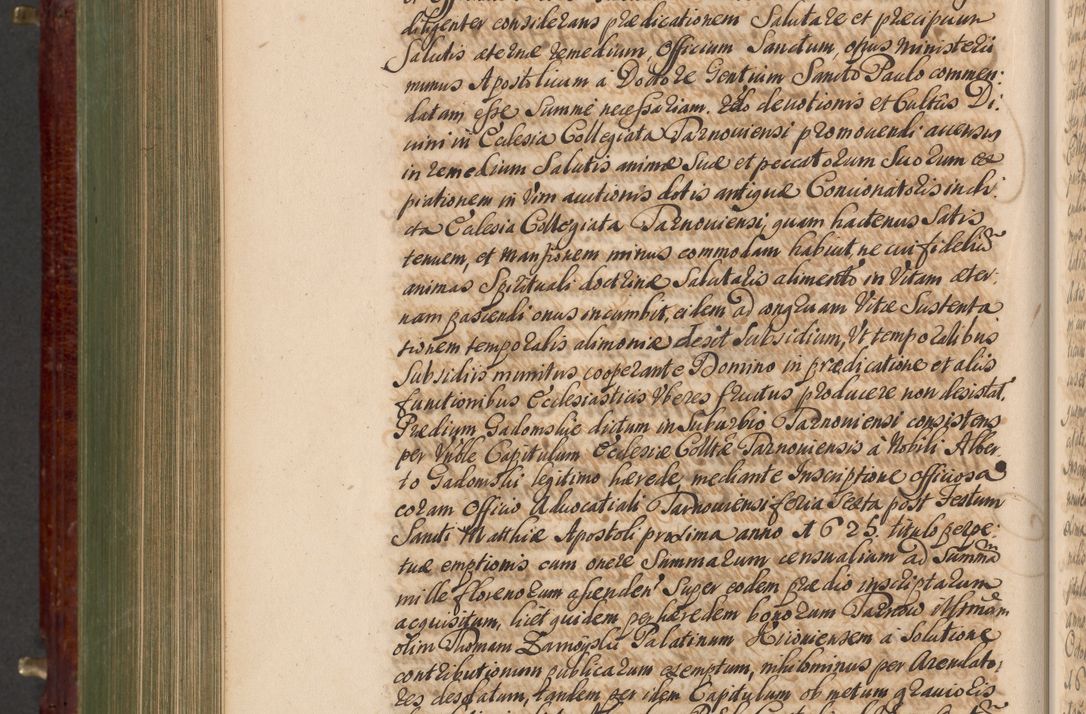 diligenter considerans prædicationem Salutare et præcipuum
Salutis æternæ remedium, Officium Sanctum, opus ministerii
munus Apostolicum a Doctore Gentium Sancto Paulo commen-
datam esse Summe necessariam. Zelo devotionis et Cultûs Di-
vini in Ecclesia Collegiata Tarnoviensi promovendi accensus
in remedium Salutis animæ Suæ et peccatorum Suorum ex
piationem in Vim auctionis dotis antiquæ Concionatoris in di
cta Ecclesia Collegiata Tarnoviensi, quam hactenus Satis
tenuem, et Mansionem minus commodam habuit, ne cui fideliũ
animas Spirituali doctrinæ Salutaris alimento in Vitam æter-
nam pascendi onus incumbit, eidem ad congruam Vitæ Sustenta
tionem temporalis alimoniæ desit Subsidium, Vt temporalibus
Subsidiis munitus cooperante Domino in prædicatione et aliis
functionibus Ecclesiasticis Vberes fructus producere non desistat.
Prædium Gadomskie dictum in Suburbio Tarnoviensi consistens
per Vnble Capitulum Ecclesiæ Colltæ Tarnoviensis a Nobili Alber
to Gadomski legitimo hærede, mediante Inscriptione officiosa
coram Officio Advocatiali Tarnoviensi feria Sexta post Festum
Sancti Matthiæ Apostoli proxima anno 1625. titulo perpe-
tuæ emptionis cum onere Summarum censualium ad Summã
mille florenorum ascenden' Super eodem prædio inscriptarum
acquisitum, licet quidem per hæredem bonorum Tarnow Illsmũm
olim Thomam Zamoyski Palatinum Kijoviensem a Solutione
contributionum publicarum exemptum, nihilominus per Arendato-
res desolatum, tandem per idem Capitulum ob metum gravioris